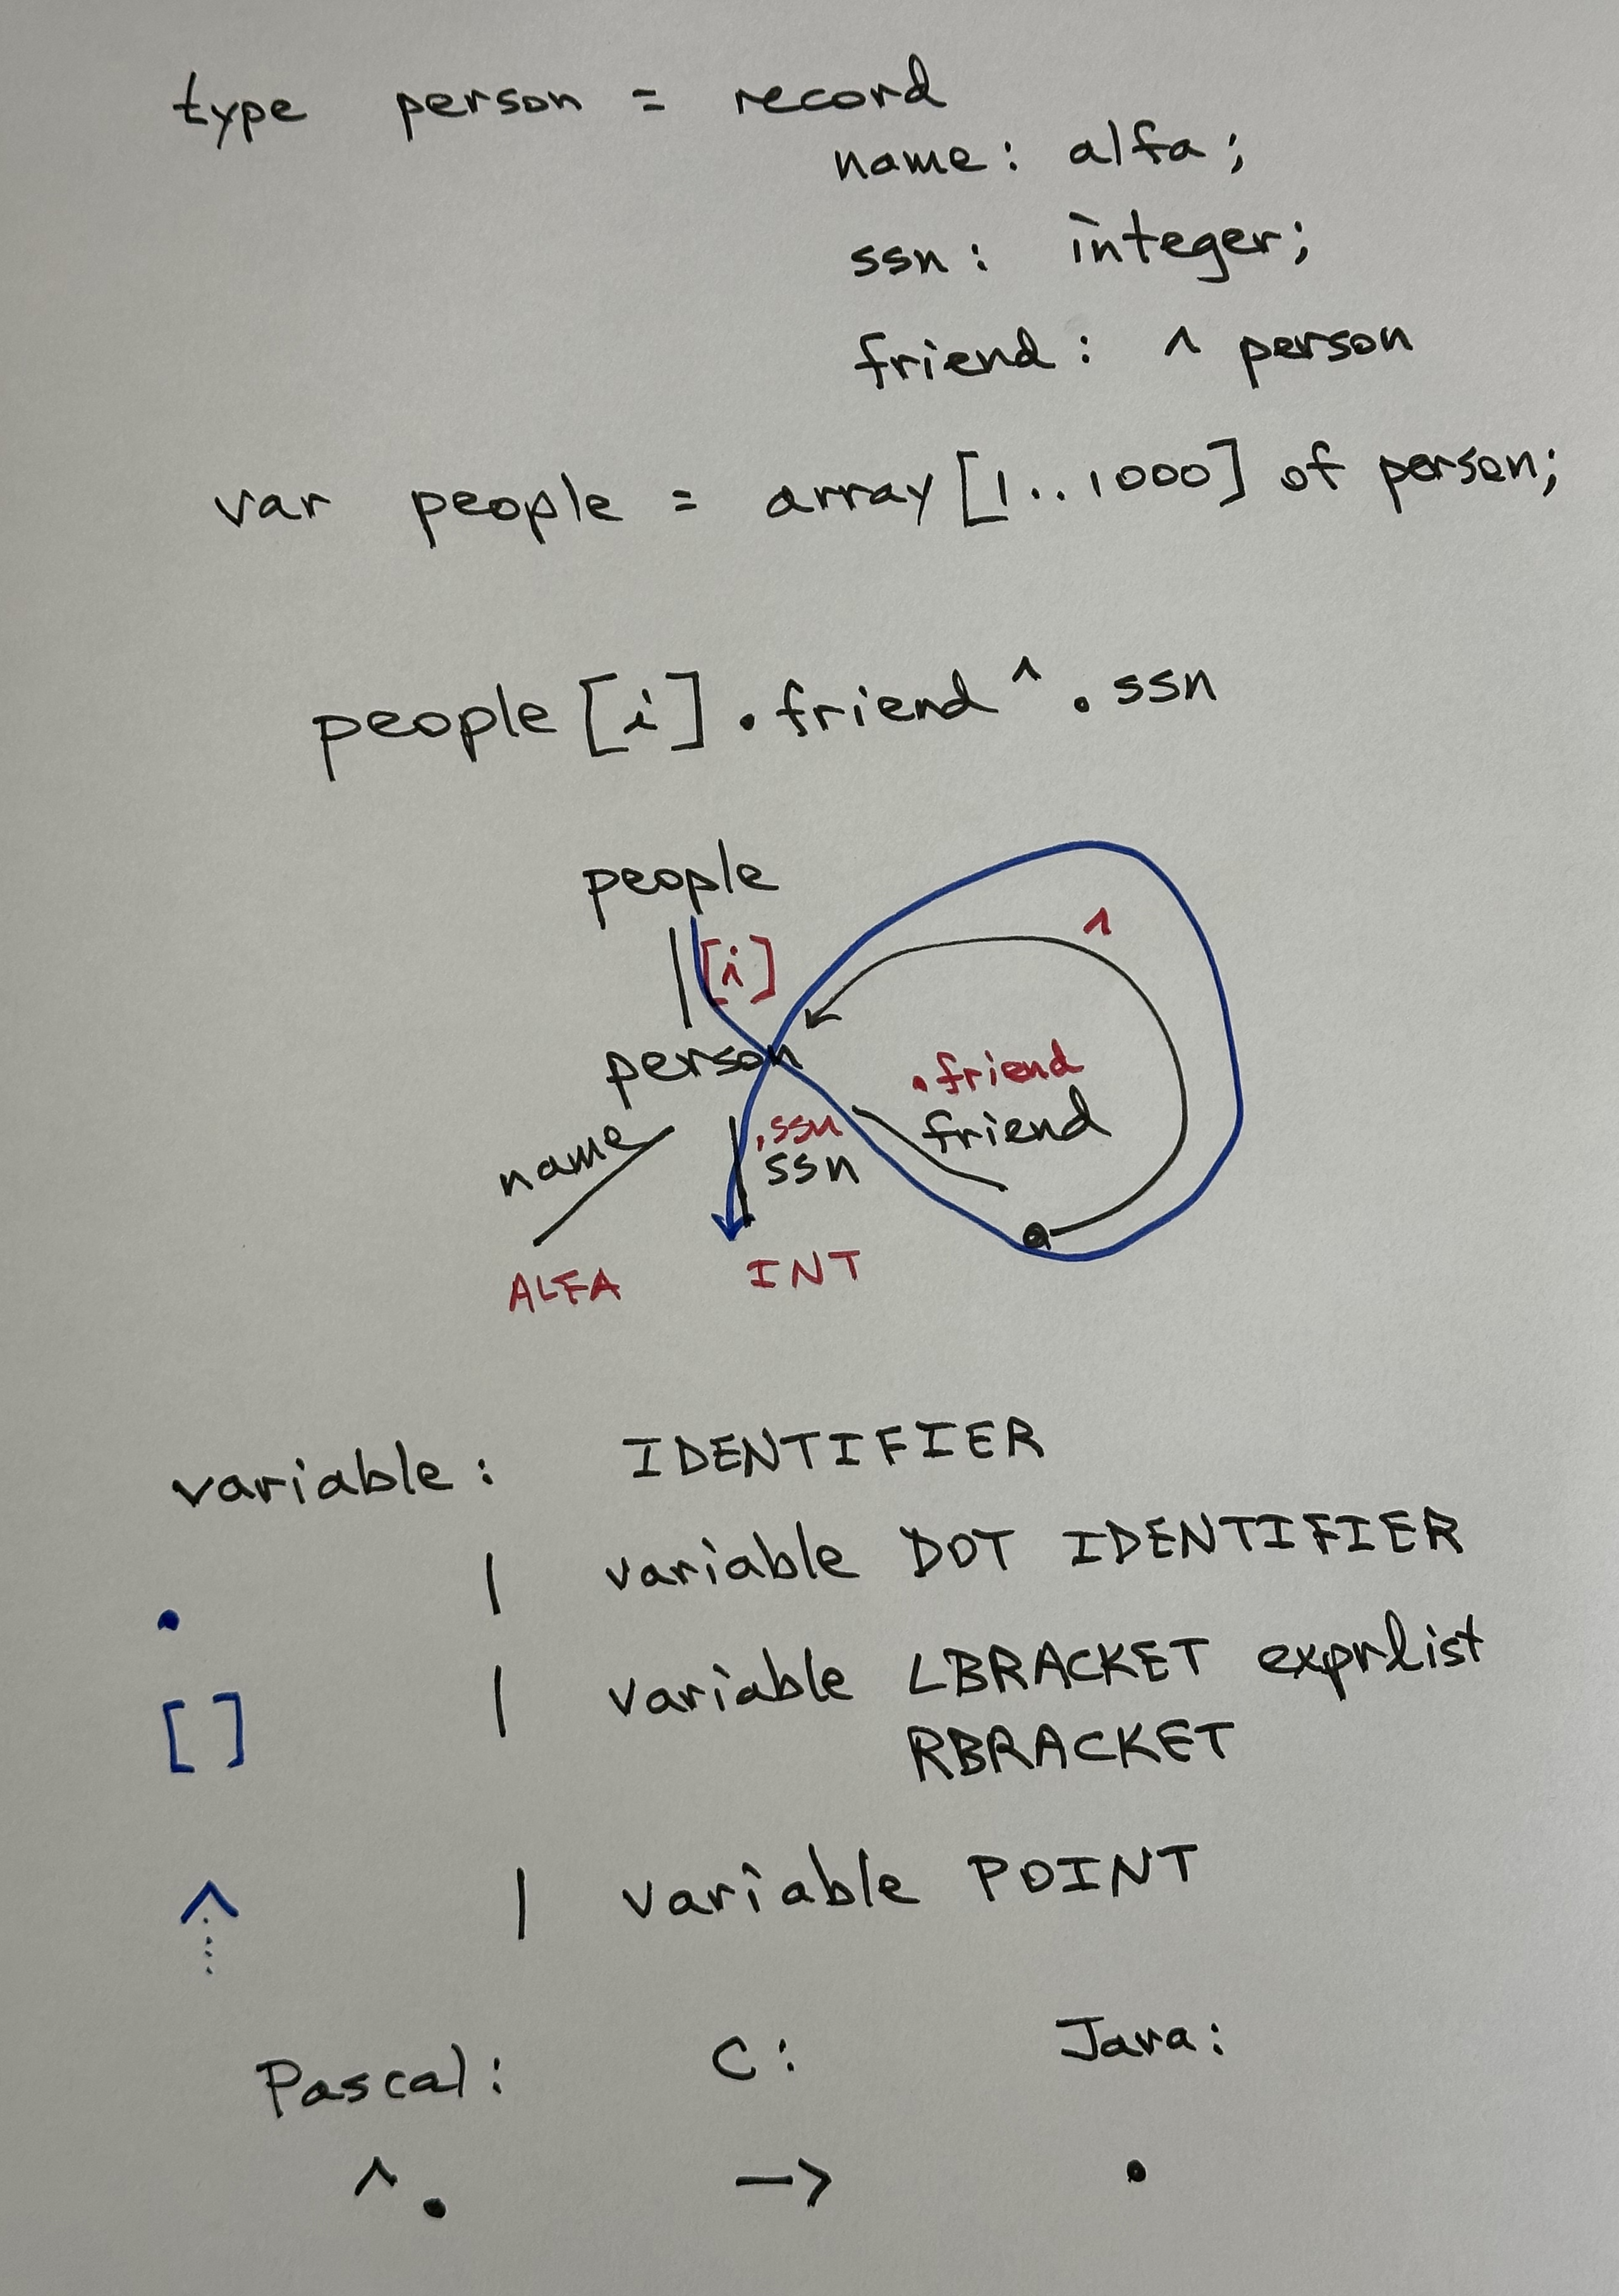 type person = record
name: alfa;
ssn: integer;
friend: ^ person
var people = array [1..1000] of person;
people [i] . friend ^ . ssn
people
[i]
^
person
.friend
friend
name
.ssn
ssn
ALFA
INT
variable: IDENTIFIER
| variable DOT IDENTIFIER
.
| variable LBRACKET exprlist
[ ]
RBRACKET
^ | variable POINT
Pascal: C: Java:
^. -> .